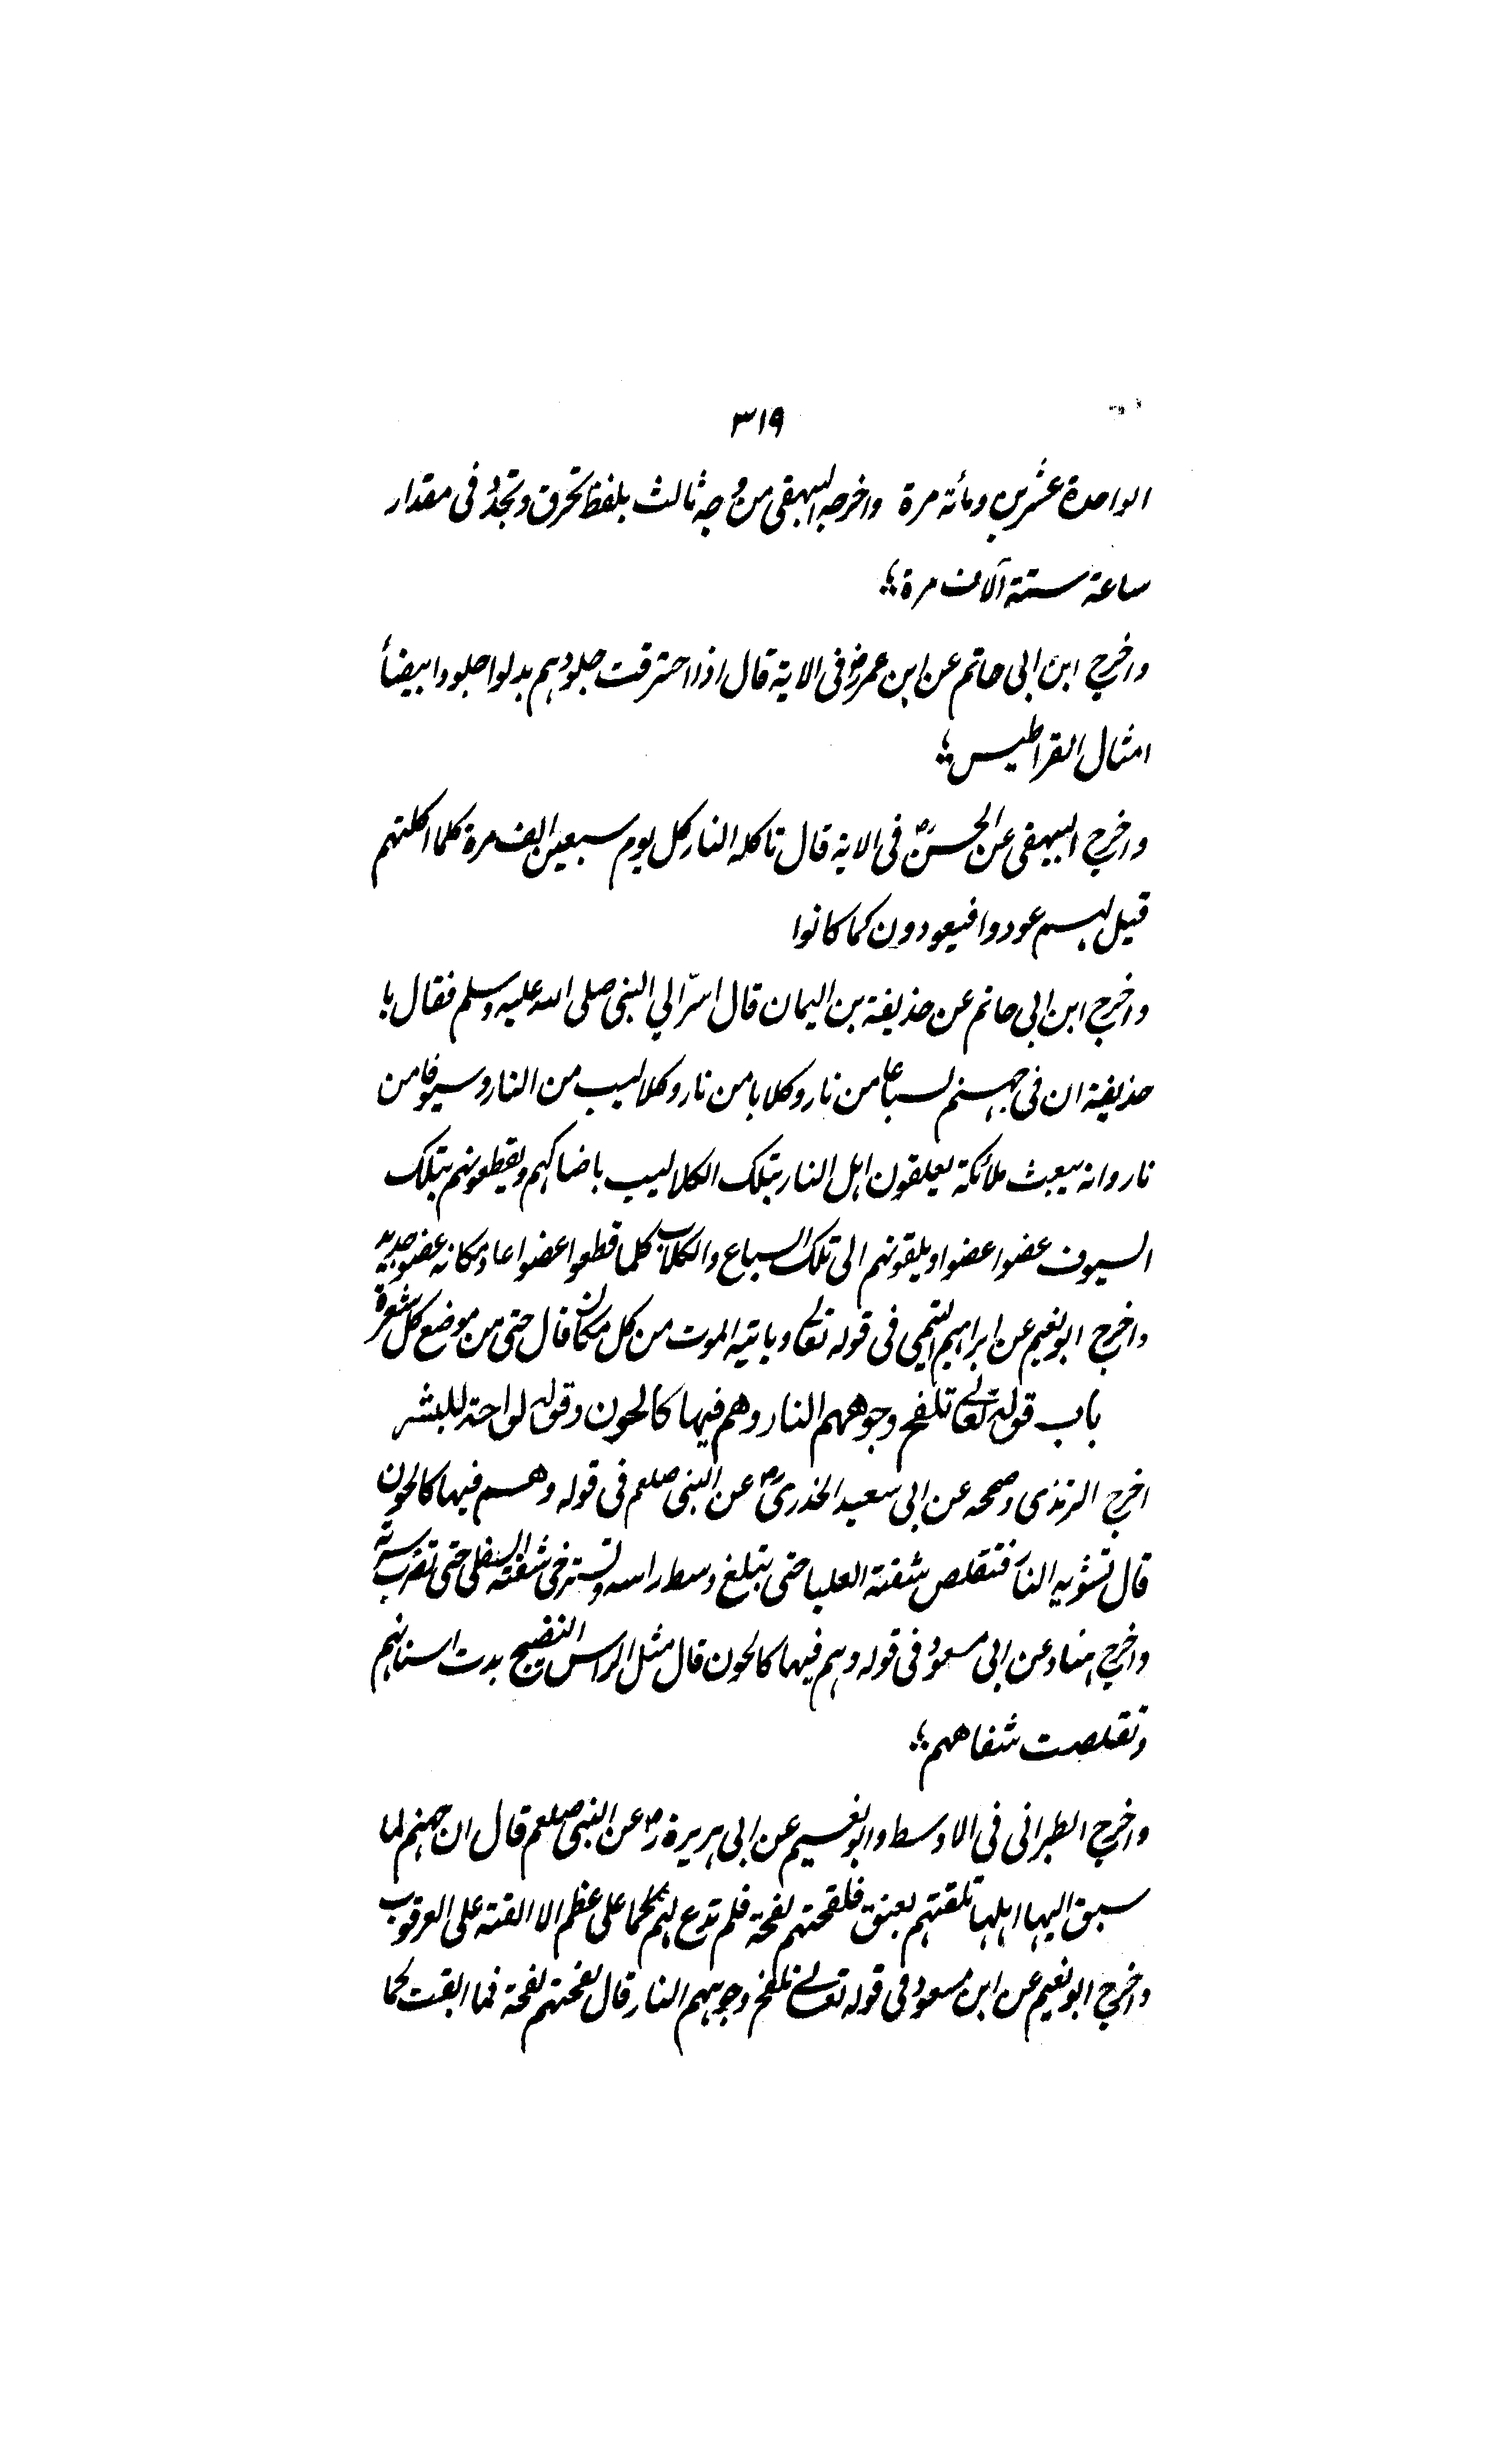 ٣١٩
الواحدة عشرين ومأته مرة واخرجه البيهقى من وجه ثالث بلفظ تحرق وتجدد فى مقدار
ساعة ستة آلاف مرة؛
واخرج ابن ابى حاتم عن ابن عمر رض فى الاية قال اذا احترقت جلودهم بدلوا جلودا ابيضأ
امثال القراطيس؛
واخرج البيهقى عن الحسن رض فى الاية قال تاكله النار كل يوم سبعين الف مرة كلما اكلتهم
قيل لهم عودوا فيعودون كما كانوا
واخرج ابن ابى حاتم عن حذيفة بن اليمان قال اسرّ الي النبى صلى الله عليه وسلم فقال يا
حذيفة ان فى جهنم لسباعا من نار وكلابا من نار وكلاليب من النار وسيوفا من
نار وانه يبعث ملائكة يعلقون اهل النار بتلك الكلاليب باضاكهم ويقطعونهم بتلك
السيوف عضوا عضوا ويلقونهم الى تلك السباع والكلاب كلما قطعوا عضوا عاد مكانه عضو جديد
واخرج ابو نعيم عن ابراهيم التيمى فى قوله تعالى وياتيه الموت من كل مكان قال حتى من موضع كل شعرة
باب قوله تعالى تلفح وجوههم النار وهم فيها كالحون وقوله لواحة للبشر
اخرج الترمذى وصححه عن ابى سعيد الخدرى رض عن النبى صلعم فى قوله وهم فيها كالحون
قال تشويه النار فتقلص شفته العليا حتى تبلغ وسط راسه وتسترخى شفته السفلى حتى تضرب سرته
واخرج هناد عن ابى مسعود فى قوله وهم فيها كالحون قال مثل الراس النضيج بدت اسنانهم
وتقلصت شفاههم؛
واخرج الطبرانى فى الاوسط وابو نعيم عن ابى هريرة رض عن النبى صلعم قال ان جهنم لما
سبق اليها اهلها تلقتهم بعنق فلفحتهم لفحة فلم تدع لهم لحما على عظم الا القته على العرقوب
واخرج ابو نعيم عن ابن مسعود فى قوله تعالى تلفح وجوههم النار قال لفحتهم لفحة فما ابقت لحما